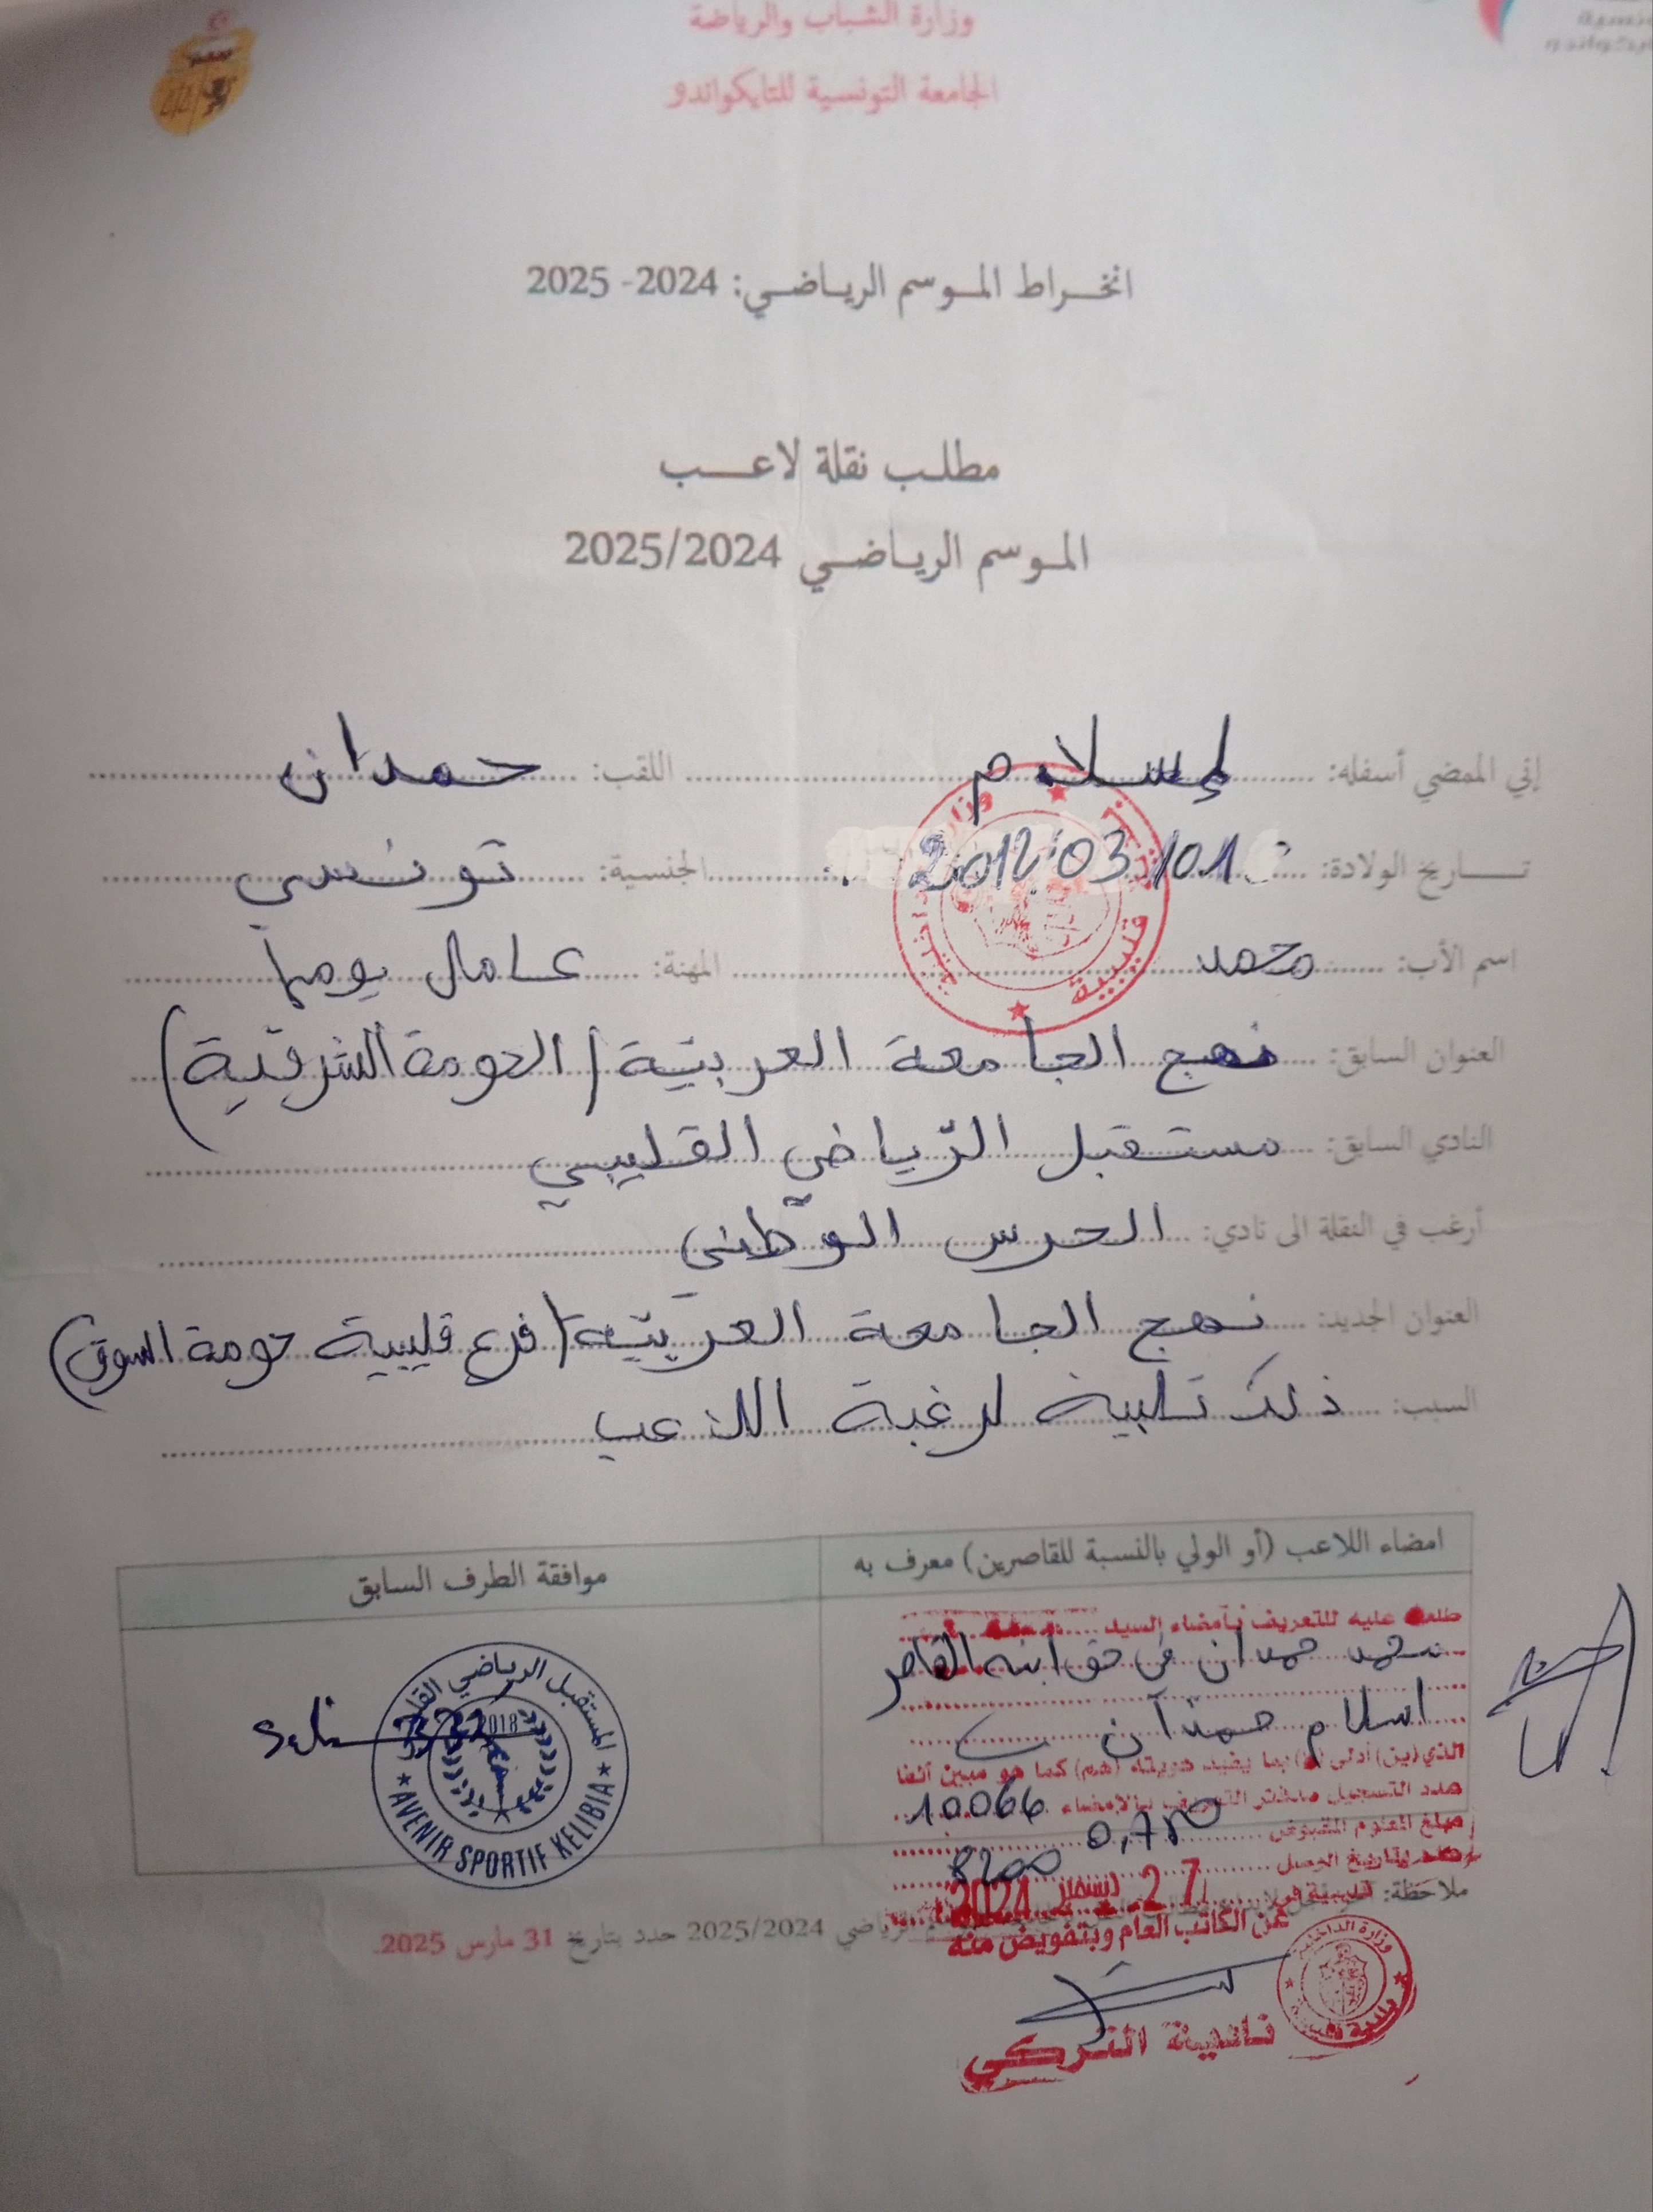 وزارة الشباب والرياضة
الجامعة التونسية للتايكواندو
انخراط الموسم الرياضي: 2024- 2025
مطلب نقلة لاعب
الموسم الرياضي 2025/2024
إني الممضي أسفله: إسلام اللقب: حمدان
تاريخ الولادة: 01/03/2012 الجنسية: تونسي
اسم الأب: محمد المهنة: عامل يوميا
العنوان السابق: نهج الجامعة العربية (الحومة الشرقية)
النادي السابق: مستقبل الرّياضي القليبي
أرغب في النقلة الى نادي: الحرس الوطني
العنوان الجديد: نهج الجامعة العربيّة (فرع قليبية حومة السوق)
السبب: ذلك تلبية لرغبة اللاعب
امضاء اللاعب (أو الولي بالنسبة للقاصرين) معرف به
موافقة الطرف السابق
عليه للتعريف بامضاء السيد
محمد حمدان في حق ابنه القاصر
اسلام حمدان
الذي (ين) أدلى بما يفيد هويته (هم) كما هو مبين آنفا
عدد التسجيل بدفتر التعريف بالامضاء 10066
مبلغ المعلوم المقبوض
بتاريخ
27 ديسمبر 2024
المستقبل الرياضي
2018
AVENIR SPORTIF KELIBIA
ملاحظة: الرياضي 2025/2024 حدد بتاريخ 31 مارس 2025.
عن الكاتب العام وبتفويض منه
وزارة الداخلية
نادية التركي